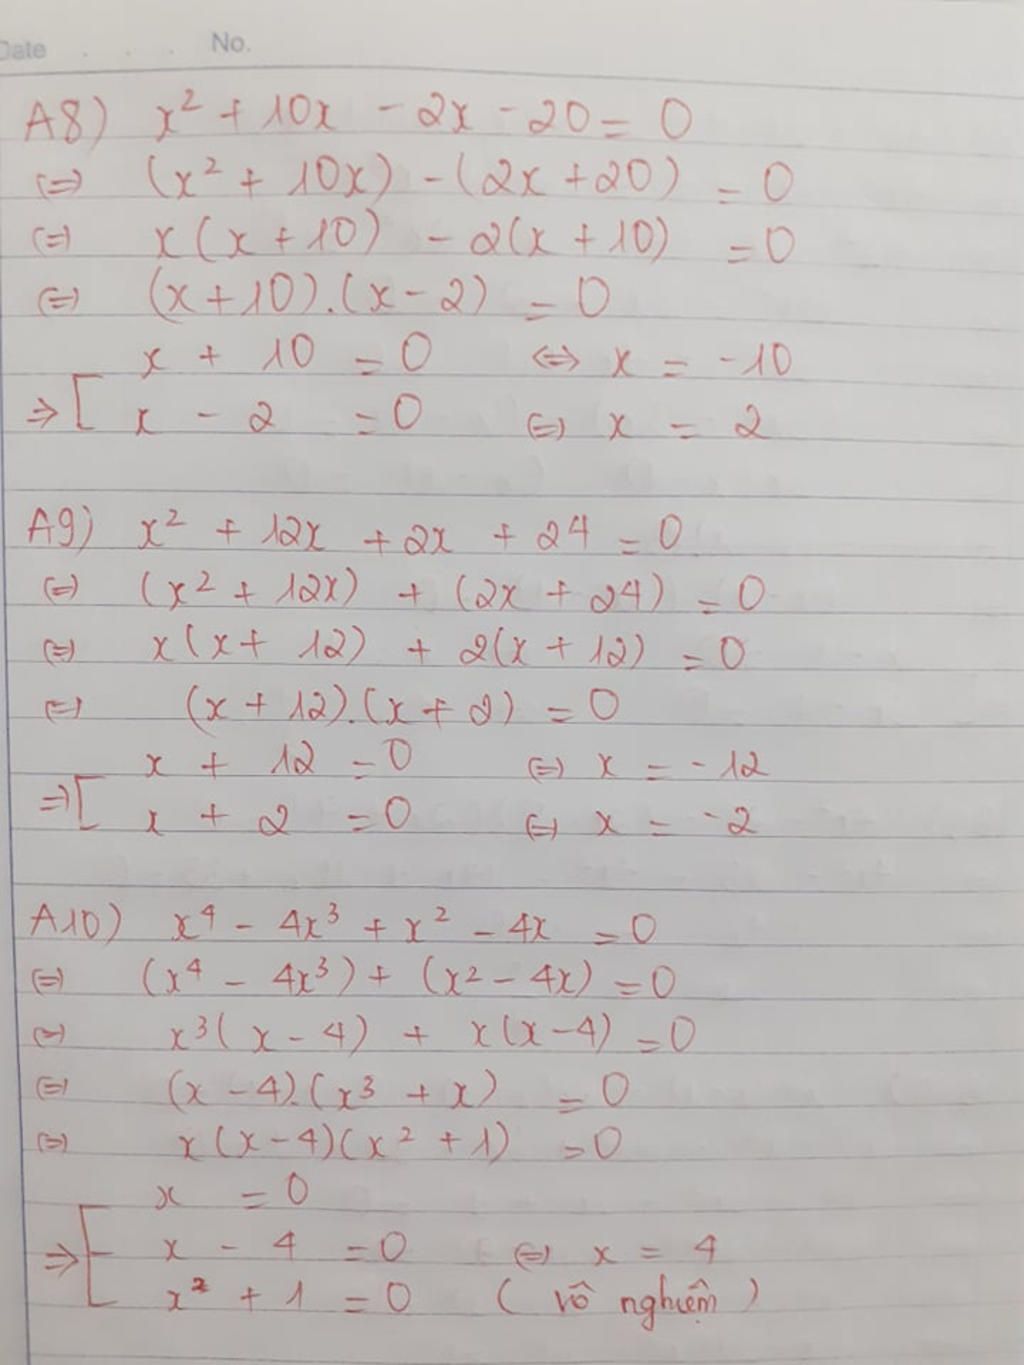 Date . . . No.
A8) x² + 10x - 2x - 20 = 0
(=) (x² + 10x) - (2x + 20) = 0
(=) x(x + 10) - 2(x + 10) = 0
(=) (x + 10).(x - 2) = 0
x + 10 = 0 <=> x = -10
=> [ x - 2 = 0 (=) x = 2
A9) x² + 12x + 2x + 24 = 0
(=) (x² + 12x) + (2x + 24) = 0
(=) x(x + 12) + 2(x + 12) = 0
(=) (x + 12).(x + 2) = 0
x + 12 = 0 (=) x = -12
=> [ x + 2 = 0 (=) x = -2
A10) x⁴ - 4x³ + x² - 4x = 0
(=) (x⁴ - 4x³) + (x² - 4x) = 0
(=) x³(x - 4) + x(x - 4) = 0
(=) (x - 4).(x³ + x) = 0
(=) x(x - 4)(x² + 1) = 0
x = 0
=> [ x - 4 = 0 (=) x = 4
x² + 1 = 0 (vô nghiệm)